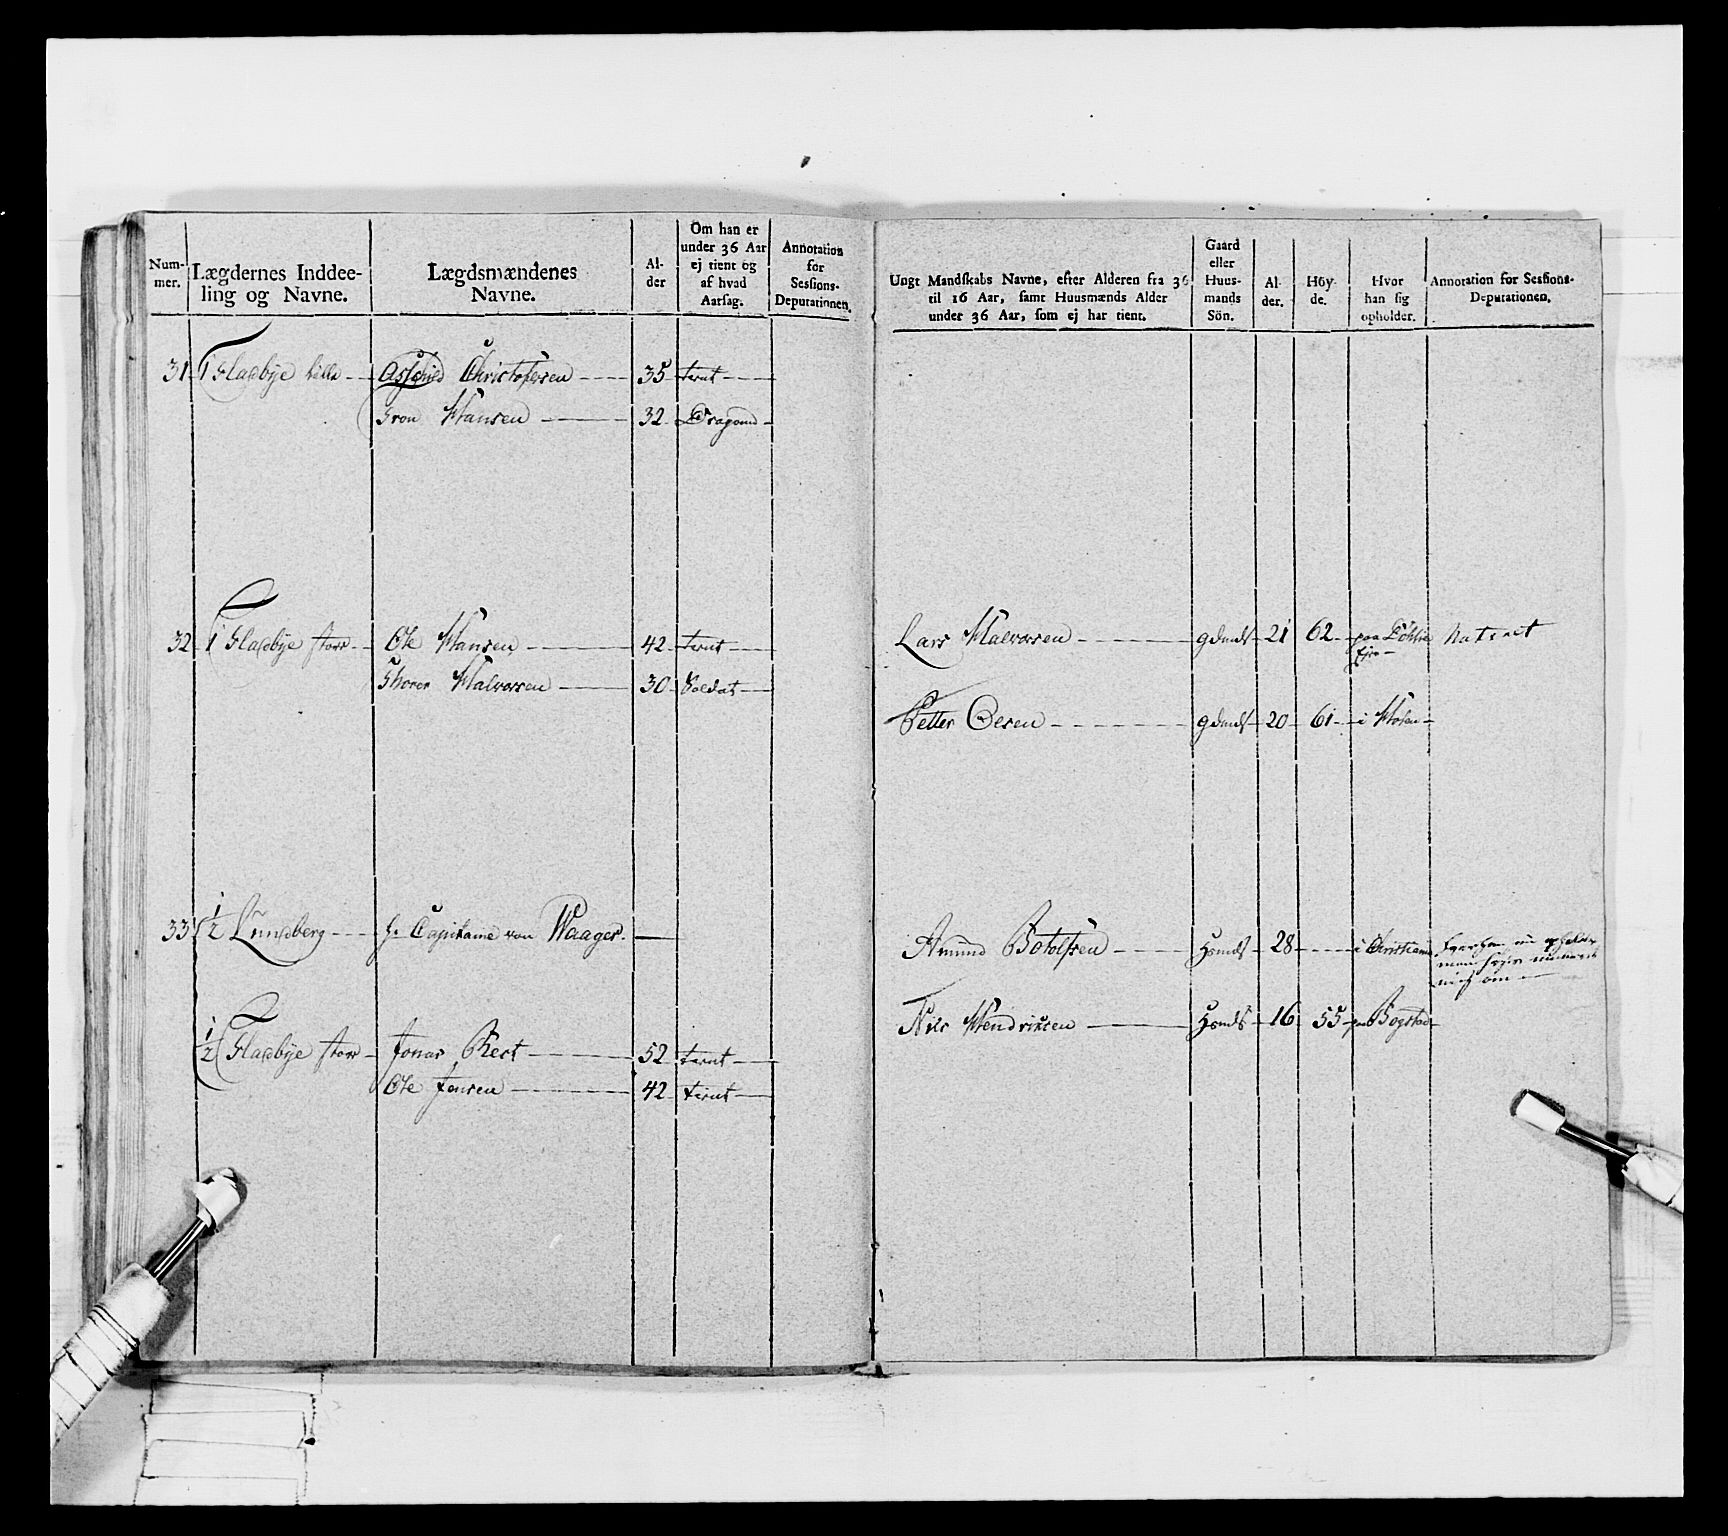 Num-
mer.
Lægdernes Inddee-
ling og Navne.
Lægdsmændenes
Navne.
Al-
der
Om han er
under 36 Aar
ej tient og
af hvad
Aarsag.
Annotation
for
Sessions-
Deputationen.
31 1 Fladbÿe lille Asschied Christofersen 35 tient
Iron Hansen 32 Dragoun
32 1 Fladbÿe store Ole Hansen 42 tient
Thorer Halvorsen 30 Soldat
33 1/2 Lundberg hr Capitaine von Waager
1/2 Fladbÿe store Jonas Bert 52 tient
Ole Jensen 42 tient
Ungt Mandskabs Navne, efter Alderen fra 36
til 16 Aar, samt Huusmænds Alder
under 36 Aar, som ej har tient.
Gaard
eller
Huus-
mands
Sön.
Al-
der.
Höy-
de.
Hvor
han sig
opholder.
Annotation for Sessions-
Deputationen.
Lars Halvorsen gdmds 21 62 paa
Petter Oesen gdmds 20 61 i
Amund Botolfsen Hsmds 28 i Christiania
Nils Hendriksen Hsmds 16 55 paa Bogstad